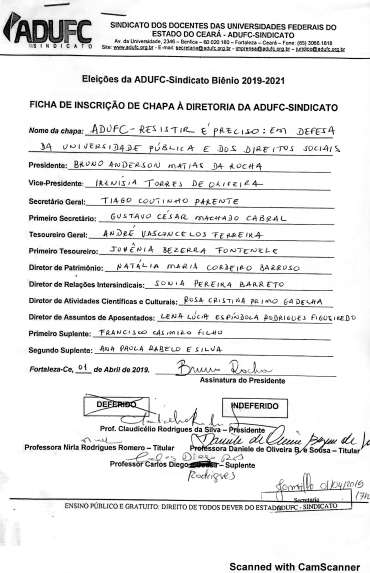 ADUFC
SINDICATO
SINDICATO DOS DOCENTES DAS UNIVERSIDADES FEDERAIS DO
ESTADO DO CEARÁ - ADUFC-SINDICATO
Av. da Universidade, 2346 – Benfica – 60 020 180 – Fortaleza – Ceará – Fone: (85) 3066 1818
Site: www.adufc.org.br - E-mail: secretaria@adufc.org.br – imprensa@adufc.org.br – juridico@adufc.org.br
Eleições da ADUFC-Sindicato Biênio 2019-2021
FICHA DE INSCRIÇÃO DE CHAPA À DIRETORIA DA ADUFC-SINDICATO
Nome da chapa: ADUFC - RESISTIR É PRECISO: EM DEFESA
DA UNIVERSIDADE PÚBLICA E DOS DIREITOS SOCIAIS
Presidente: BRUNO ANDERSON MATIAS DA ROCHA
Vice-Presidente: IRENÍSIA TORRES DE OLIVEIRA
Secretário Geral: TIAGO COUTINHO PARENTE
Primeiro Secretário: GUSTAVO CÉSAR MACHADO CABRAL
Tesoureiro Geral: ANDRÉ VASCONCELOS FERREIRA
Primeiro Tesoureiro: JUVÊNIA BEZERRA FONTENELE
Diretor de Patrimônio: NATÁLIA MARIA CORDEIRO BARROSO
Diretor de Relações Intersindicais: SONIA PEREIRA BARRETO
Diretor de Atividades Científicas e Culturais: ROSA CRISTINA PRIMO GADELHA
Diretor de Assuntos de Aposentados: LENA LÚCIA ESPÍNDOLA RODRIGUES FIGUEIREDO
Primeiro Suplente: FRANCISCO CASIMIRO FILHO
Segundo Suplente: ANA PAOLA RABELO E SILVA
Fortaleza-Ce, 01 de Abril de 2019. Bruno Rocha
Assinatura do Presidente
DEFERIDO INDEFERIDO
Prof. Claudicélio Rodrigues da Silva – Presidente
Professora Nirla Rodrigues Romero – Titular Professora Daniele de Oliveira B. e Sousa – Titular
Professor Carlos Diego – Suplente
Rodrigues
Secretaria
ENSINO PÚBLICO E GRATUITO: DIREITO DE TODOS DEVER DO ESTADO ADUFC - SINDICATO
Scanned with CamScanner